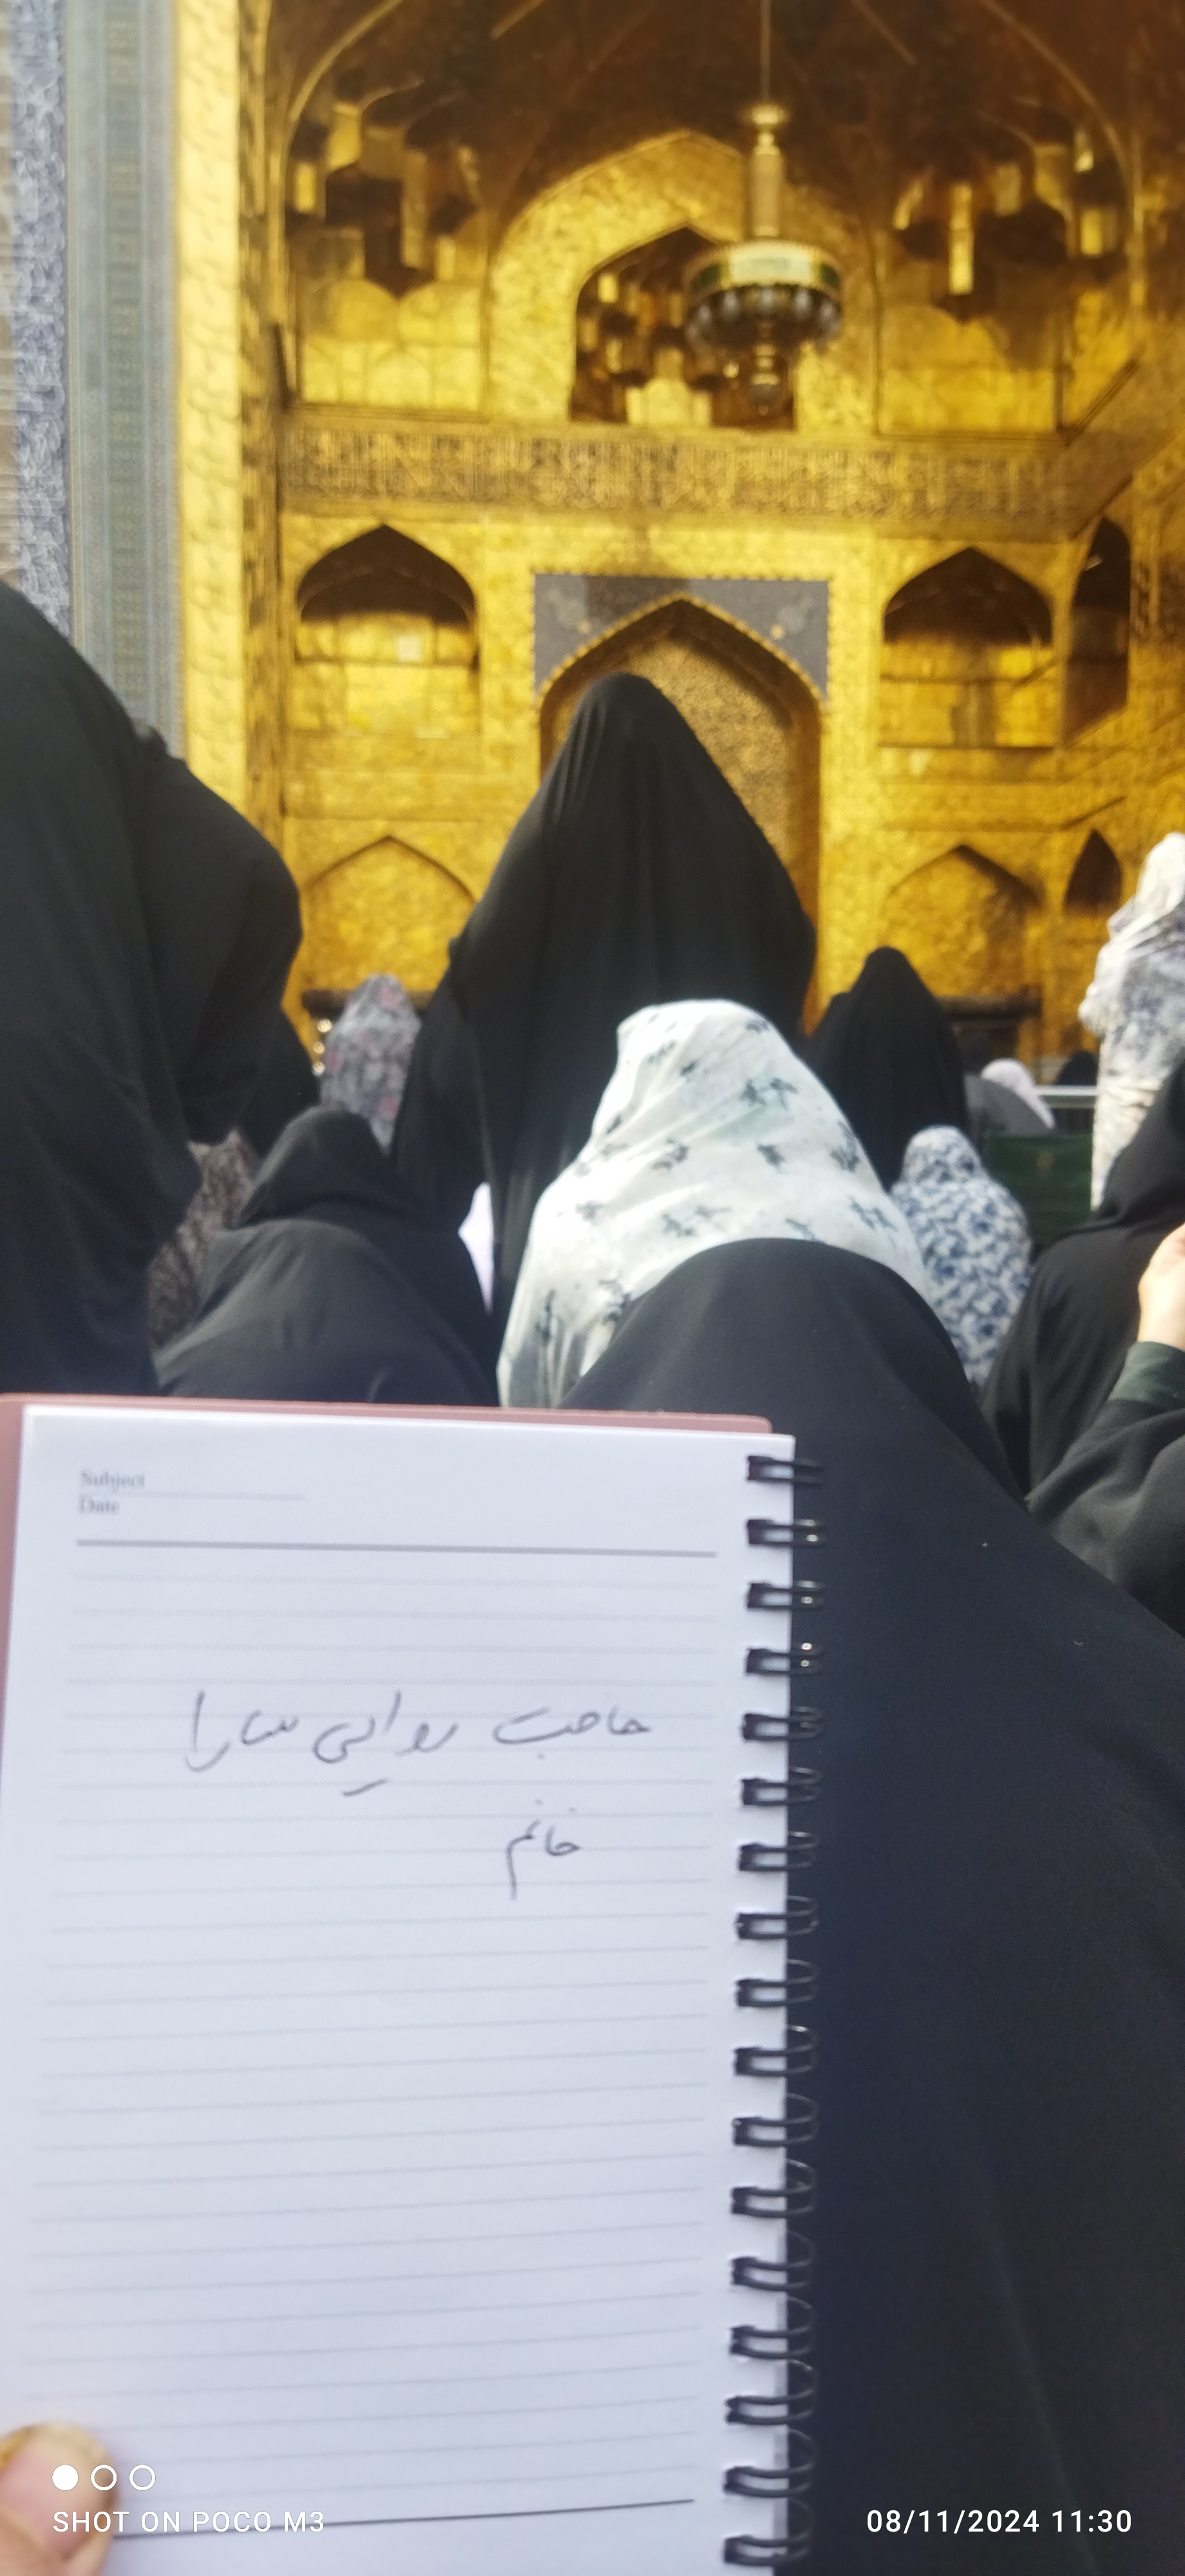 Subject
Date
حاجت روایی سارا
خانم
SHOT ON POCO M3
08/11/2024 11:30